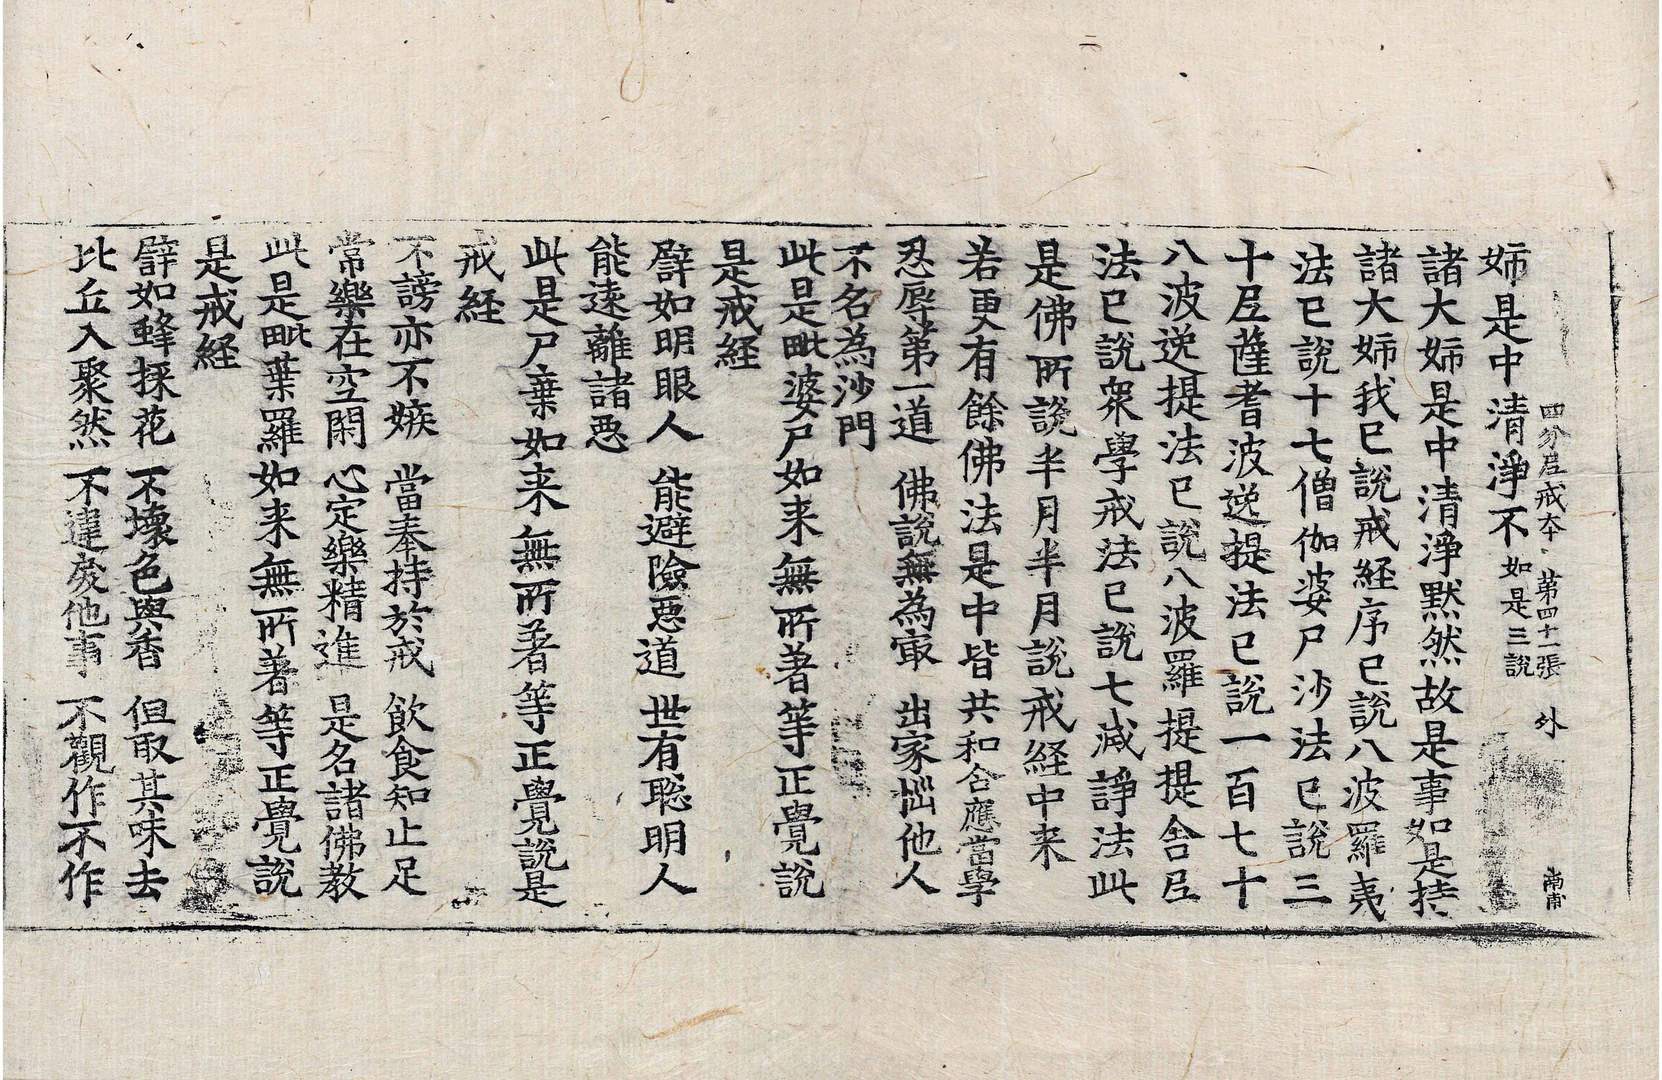 四分尼戒本 第四十一張 外
姉是中清淨不如是三說
諸大姉是中清淨默然故是事如是持
諸大姉我已說戒経序已說八波羅夷
法已說十七僧伽婆尸沙法已說三
十尼薩耆波逸提法已說一百七十
八波逸提法已說八波羅提提舍尼
法已說衆學戒法已說七滅諍法此
是佛所說半月半月說戒経中来
若更有餘佛法是中皆共和合應當學
忍辱第一道 佛說無為㝡 出家惱他人
不名為沙門
此是毗婆尸如来無所著等正覺說
是戒経
譬如明眼人 能避險惡道 世有聡明人
能遠離諸惡
此是尸棄如来無所著等正覺說是
戒経
不謗亦不嫉 當奉持於戒 飲食知止足
常樂在空閑 心定樂精進 是名諸佛教
此是毗葉羅如来無所著等正覺說
是戒経
譬如蜂採花 不壞色與香 但取其味去
比丘入聚然 不違戾他事 不觀作不作